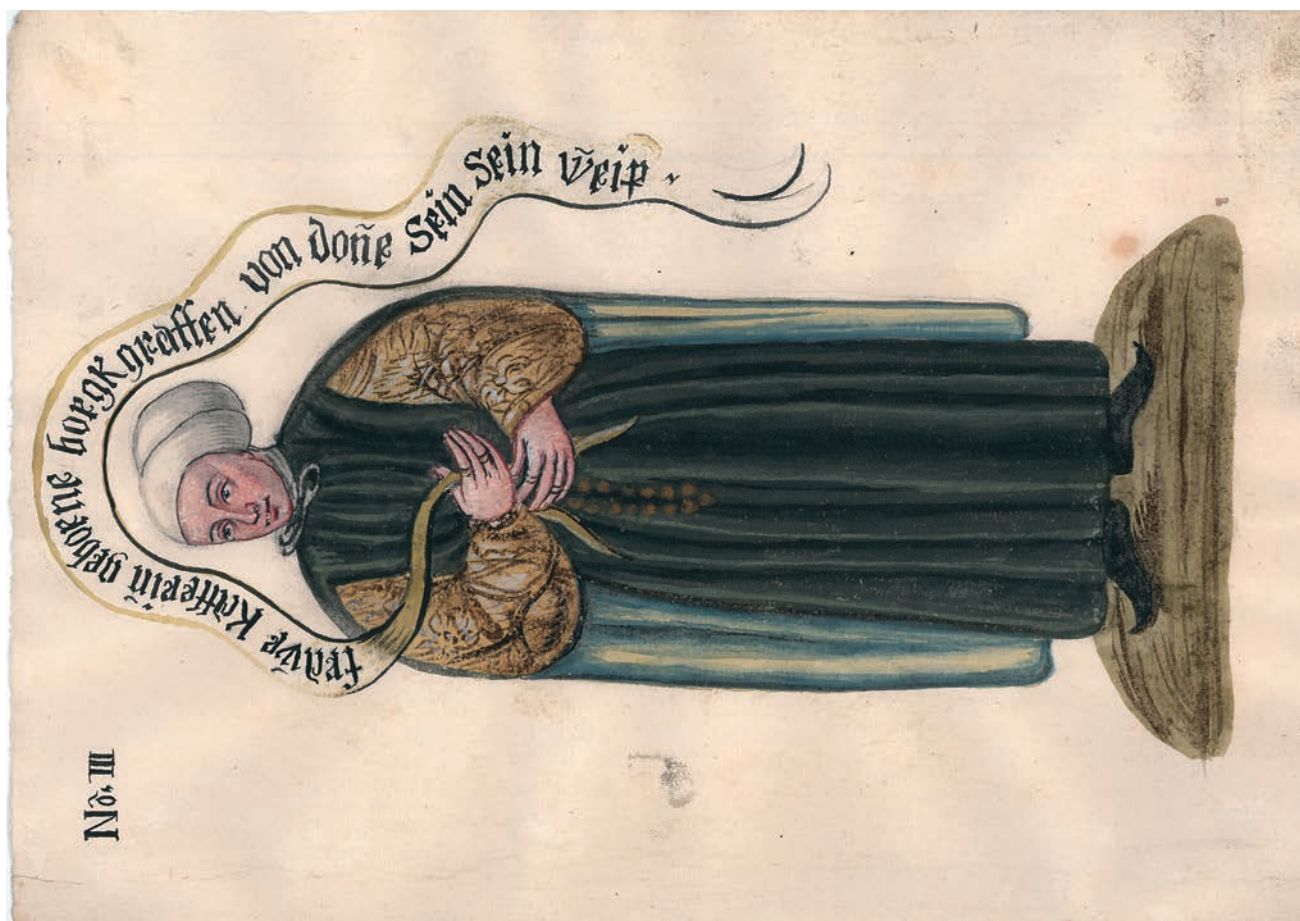 No: III
frawe Kristferin geborne borgkgraffen von doñe Sein Sein weip .